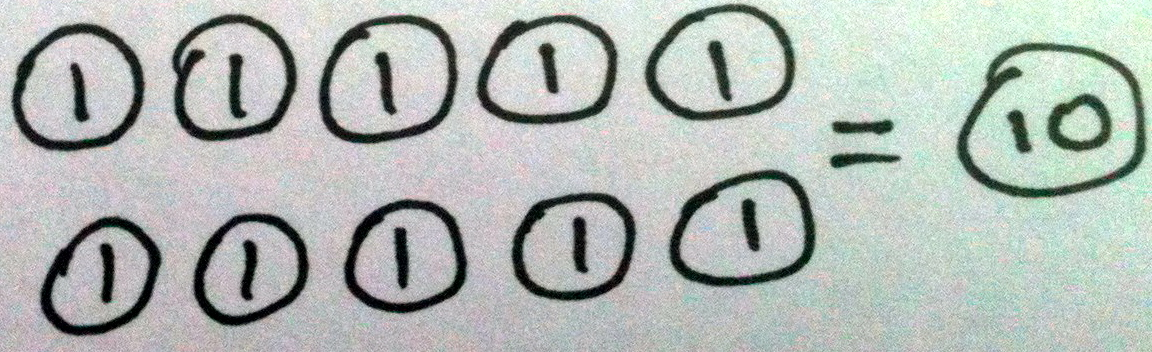 1 1 1 1 1
= 10
1 1 1 1 1